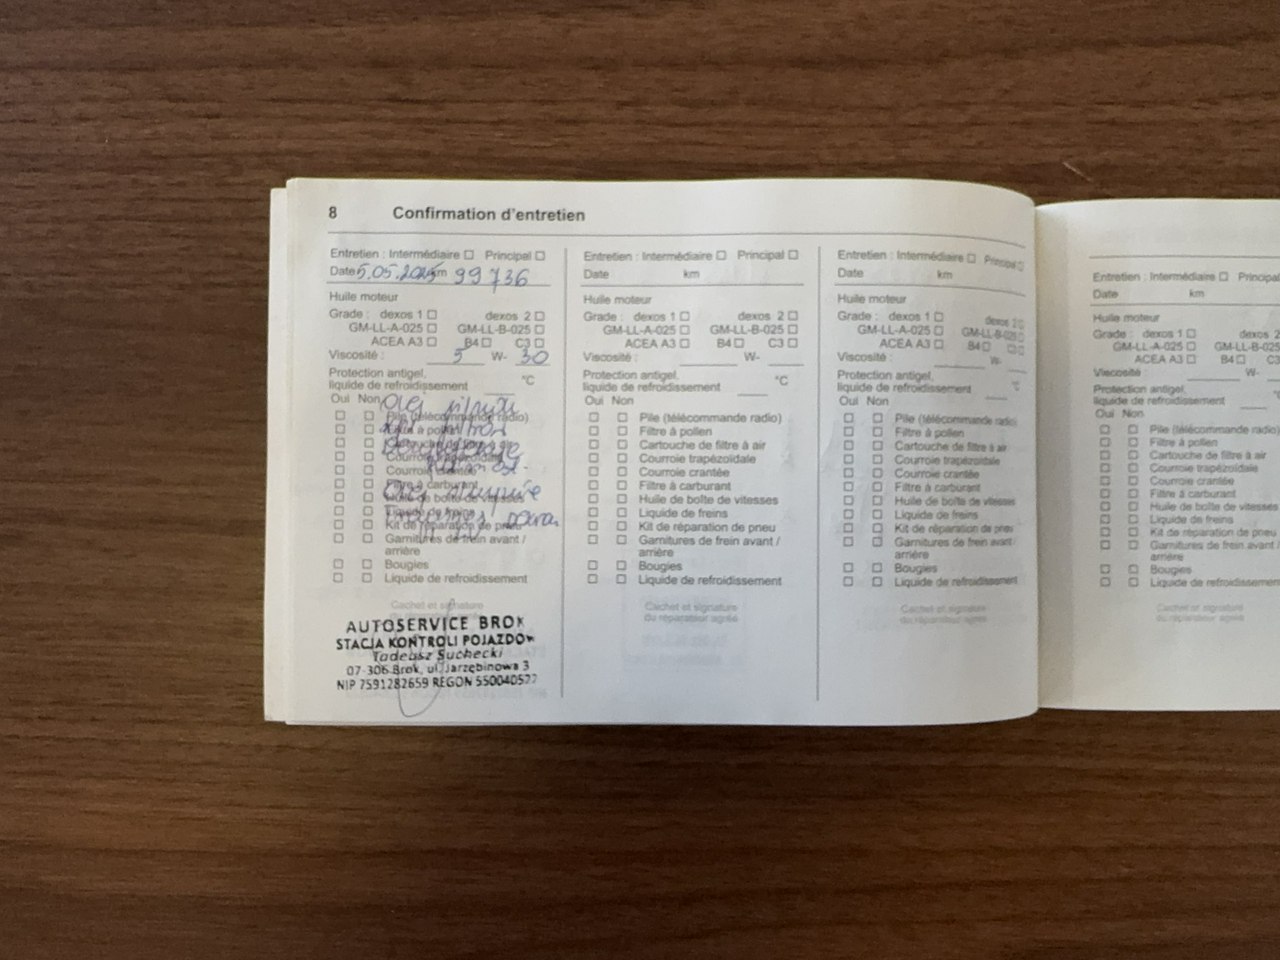 8 Confirmation d'entretien
Entretien : Intermédiaire ☐ Principal ☐
Date 5.05.2025 km 99 736
Huile moteur
Grade : dexos 1 ☐ dexos 2 ☐
GM-LL-A-025 ☐ GM-LL-B-025 ☐
ACEA A3 ☐ B4 ☐ C3 ☐
Viscosité : 5 W- 30
Protection antigel,
liquide de refroidissement °C
Oui Non
olej silnik
☐ ☐ Pile (télécommande radio)
☐ ☐ Filtre à pollen
☐ ☐
☐ ☐ Courroie
☐ ☐ Courroie
☐ ☐ Filtre à carburant
olej
☐ ☐ Huile de boîte de vitesses
☐ ☐ Liquide de freins
☐ ☐ Kit de réparation de pneu
☐ ☐ Garnitures de frein avant /
arrière
☐ ☐ Bougies
☐ ☐ Liquide de refroidissement
Cachet et signature
AUTOSERVICE BROK
STACJA KONTROLI POJAZDÓW
Tadeusz Suchecki
07-306 Brok, ul. Jarzębinowa 3
NIP 7591282659 REGON 550040577
Entretien : Intermédiaire ☐ Principal ☐
Date km
Huile moteur
Grade : dexos 1 ☐ dexos 2 ☐
GM-LL-A-025 ☐ GM-LL-B-025 ☐
ACEA A3 ☐ B4 ☐ C3 ☐
Viscosité : W-
Protection antigel,
liquide de refroidissement °C
Oui Non
☐ ☐ Pile (télécommande radio)
☐ ☐ Filtre à pollen
☐ ☐ Cartouche de filtre à air
☐ ☐ Courroie trapézoïdale
☐ ☐ Courroie crantée
☐ ☐ Filtre à carburant
☐ ☐ Huile de boîte de vitesses
☐ ☐ Liquide de freins
☐ ☐ Kit de réparation de pneu
☐ ☐ Garnitures de frein avant /
arrière
☐ ☐ Bougies
☐ ☐ Liquide de refroidissement
Cachet et signature
du réparateur agréé
Entretien : Intermédiaire ☐ Principal ☐
Date km
Huile moteur
Grade : dexos 1 ☐ dexos 2 ☐
GM-LL-A-025 ☐ GM-LL-B-025 ☐
ACEA A3 ☐ B4 ☐ C3 ☐
Viscosité : W-
Protection antigel,
liquide de refroidissement °C
Oui Non
☐ ☐ Pile (télécommande radio)
☐ ☐ Filtre à pollen
☐ ☐ Cartouche de filtre à air
☐ ☐ Courroie trapézoïdale
☐ ☐ Courroie crantée
☐ ☐ Filtre à carburant
☐ ☐ Huile de boîte de vitesses
☐ ☐ Liquide de freins
☐ ☐ Kit de réparation de pneu
☐ ☐ Garnitures de frein avant /
arrière
☐ ☐ Bougies
☐ ☐ Liquide de refroidissement
Cachet et signature
du réparateur agréé
Entretien : Intermédiaire ☐ Principal
Date km
Huile moteur
Grade : dexos 1 ☐ dexos 2
GM-LL-A-025 ☐ GM-LL-B-025
ACEA A3 ☐ B4 ☐ C3
Viscosité : W-
Protection antigel,
liquide de refroidissement
Oui Non
☐ ☐ Pile (télécommande radio)
☐ ☐ Filtre à pollen
☐ ☐ Cartouche de filtre à air
☐ ☐ Courroie trapézoïdale
☐ ☐ Courroie crantée
☐ ☐ Filtre à carburant
☐ ☐ Huile de boîte de vitesses
☐ ☐ Liquide de freins
☐ ☐ Kit de réparation de pneu
☐ ☐ Garnitures de frein avant /
arrière
☐ ☐ Bougies
☐ ☐ Liquide de refroidissement
Cachet et signature
du réparateur agréé